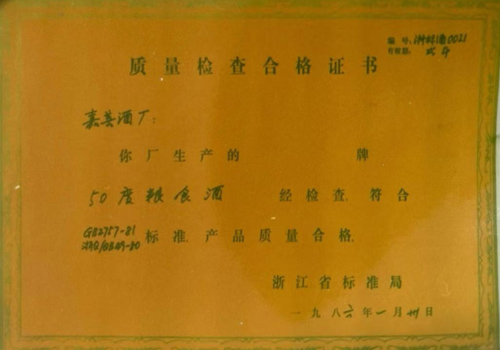 编号:浙特酒0021
有效期: 弍年
质量检查合格证书
嘉善酒厂:
你厂生产的 牌
50度粮食酒 经检查,符合
GB2757-81
标准,产品质量合格。
浙江省标准局
一九八六年一月卅日